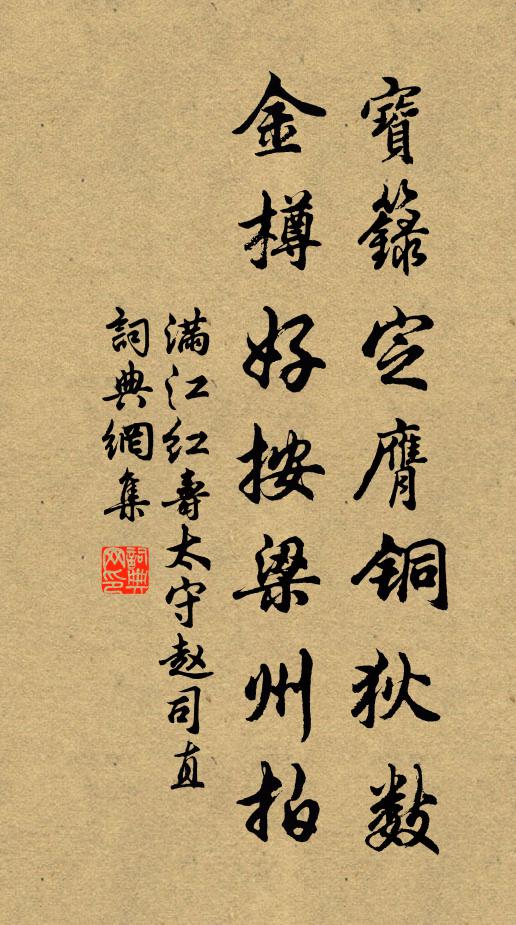 寶籙定膺铜狄数
金樽好按梁州拍
滿江红壽太守赵司直
詞典網集
詞典网印